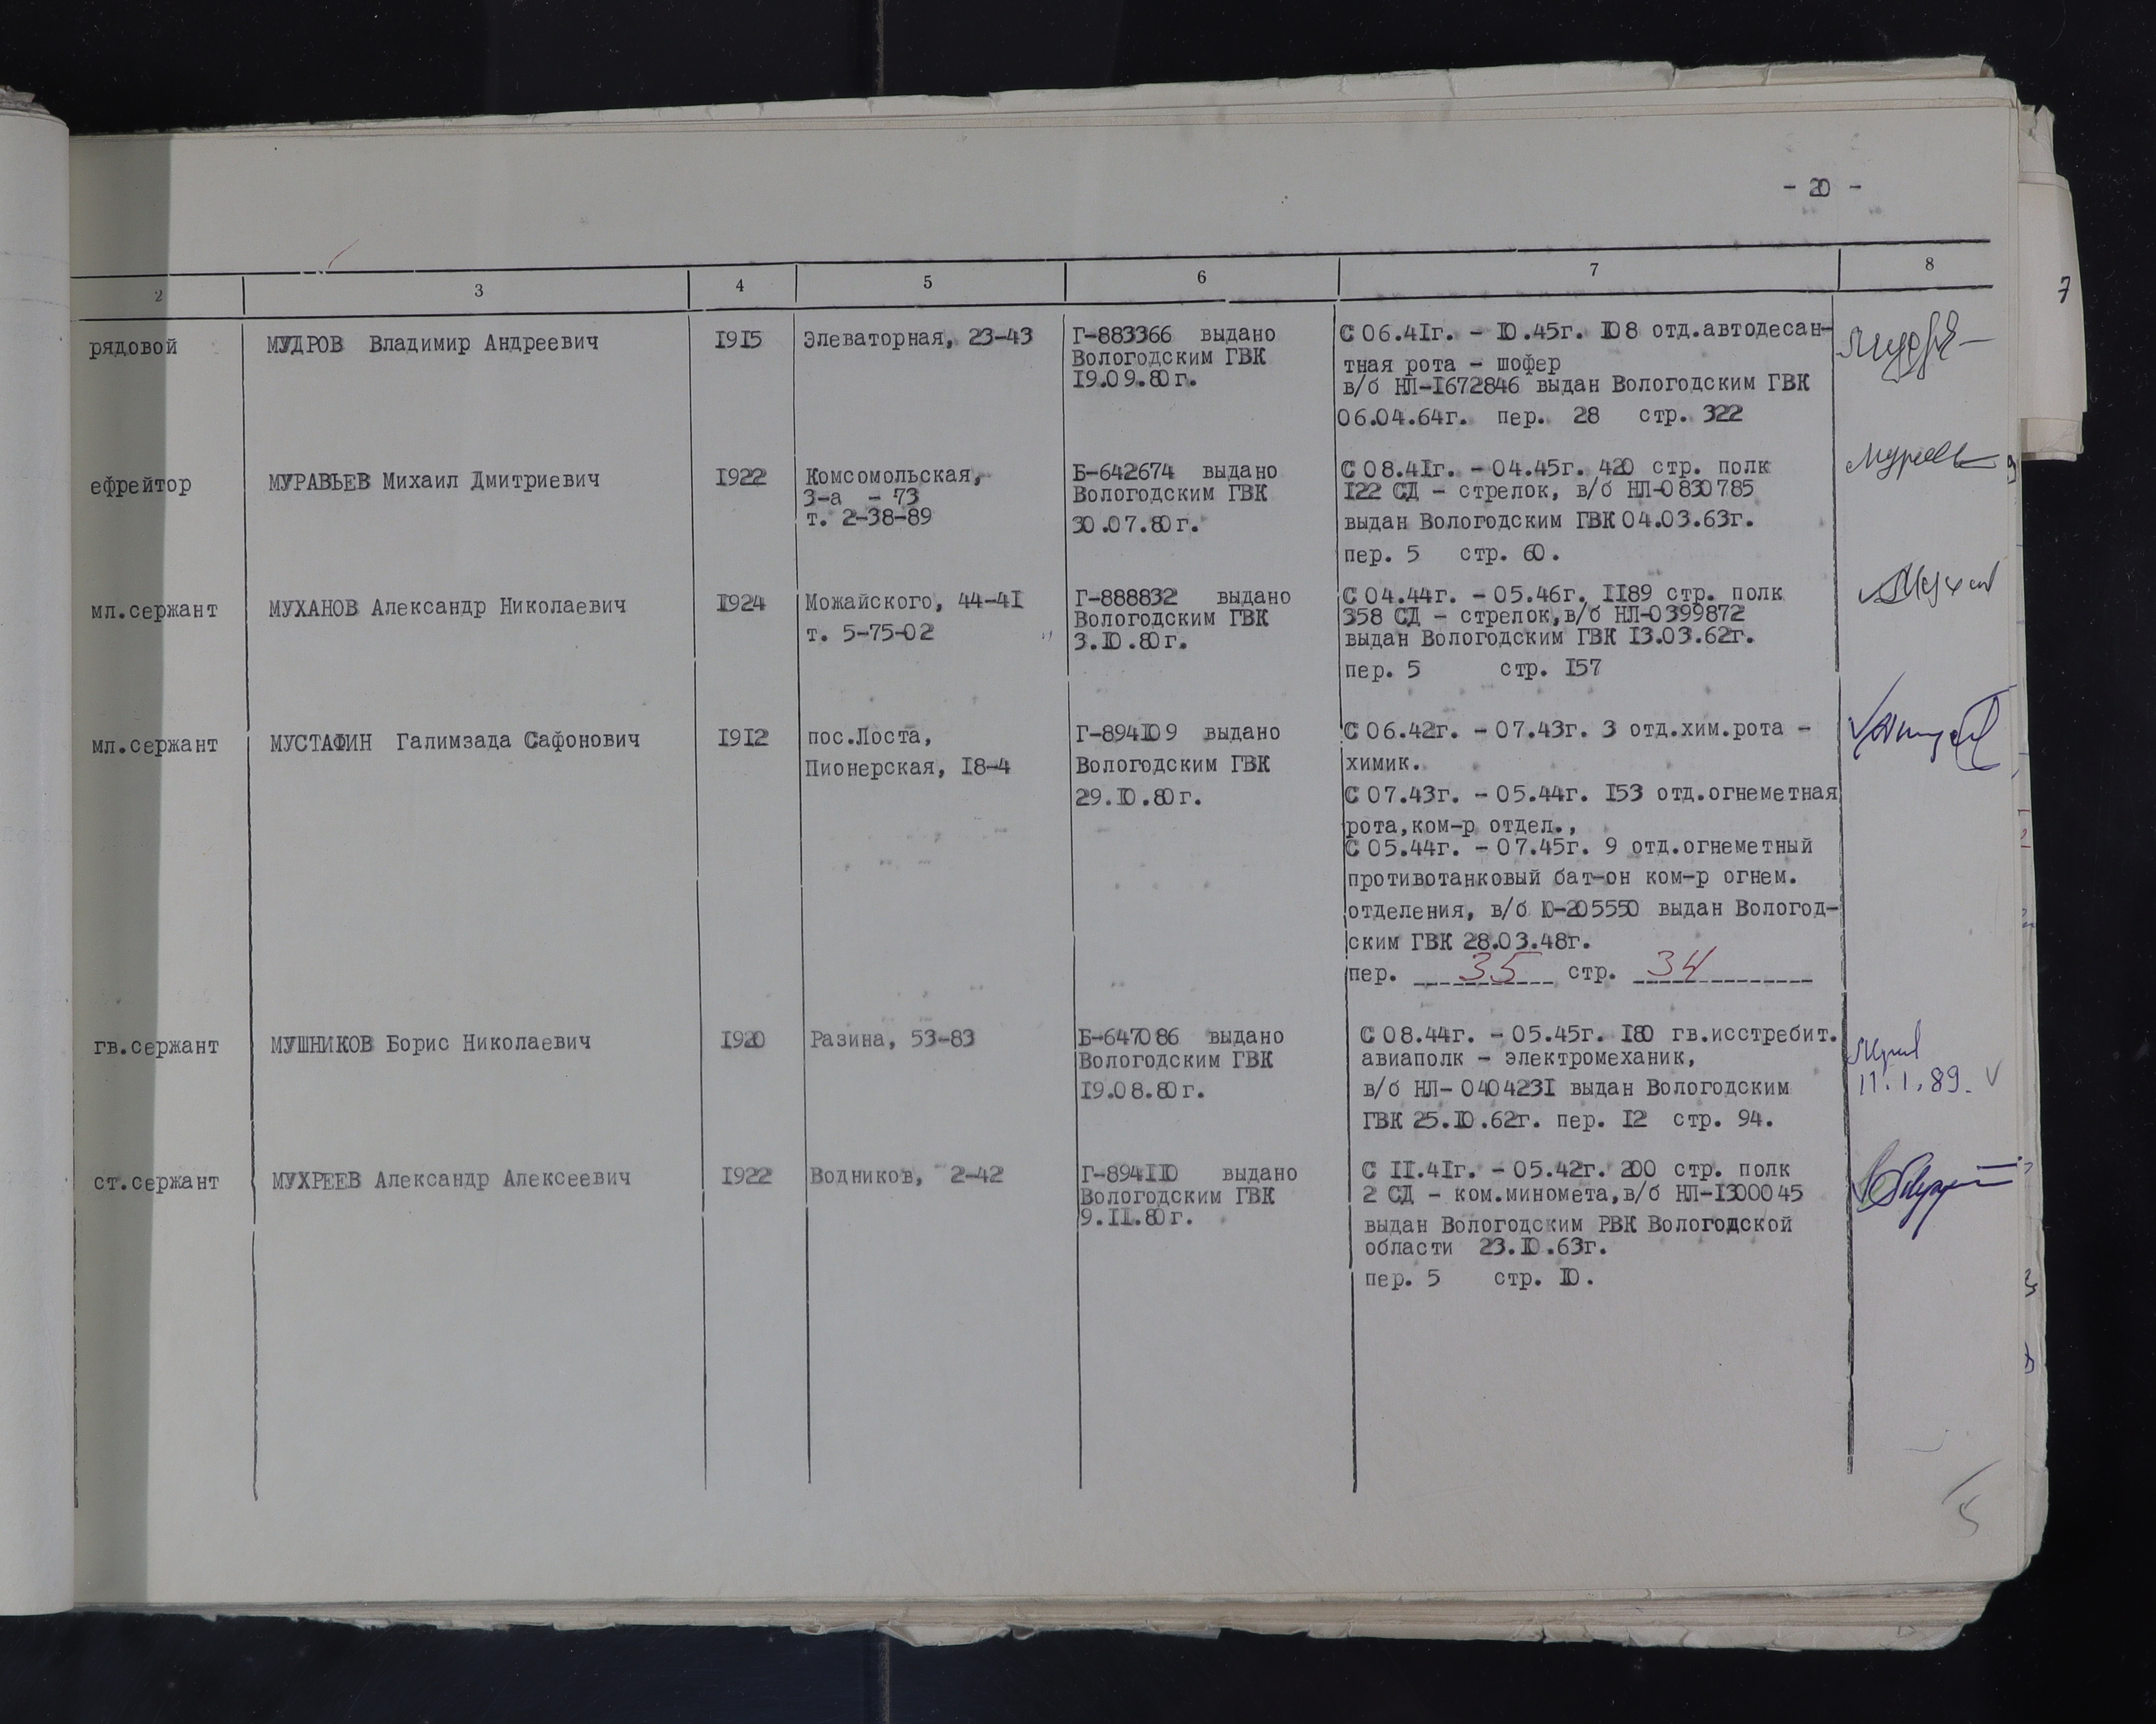 - 20 -
2 3 4 5 6 7 8
рядовой
МУДРОВ Владимир Андреевич
1915
Элеваторная, 23-43
Г-883366 выдано
Вологодским ГВК
19.09.80г.
С 06.41г. - 10.45г. 108 отд.автодесан-
тная рота - шофер
в/б НЛ-1672846 выдан Вологодским ГВК
06.04.64г. пер. 28 стр. 322
ефрейтор
МУРАВЬЕВ Михаил Дмитриевич
1922
Комсомольская,
3-а - 73
т. 2-38-89
Б-642674 выдано
Вологодским ГВК
30.07.80г.
С 08.41г. - 04.45г. 420 стр. полк
122 СД - стрелок, в/б НЛ-0830785
выдан Вологодским ГВК 04.03.63г.
пер. 5 стр. 60.
мл.сержант
МУХАНОВ Александр Николаевич
1924
Можайского, 44-41
т. 5-75-02
Г-888832 выдано
Вологодским ГВК
3.10.80г.
С 04.44г. - 05.46г. 1189 стр. полк
358 СД - стрелок,в/б НЛ-0399872
выдан Вологодским ГВК 13.03.62г.
пер. 5 стр. 157
мл.сержант
МУСТАФИН Галимзада Сафонович
1912
пос.Лоста,
Пионерская, 18-4
Г-894109 выдано
Вологодским ГВК
29.10.80г.
С 06.42г. - 07.43г. 3 отд.хим.рота -
химик.
С 07.43г. - 05.44г. 153 отд.огнеметная
рота,ком-р отдел.,
С 05.44г. - 07.45г. 9 отд.огнеметный
противотанковый бат-он ком-р огнем.
отделения, в/б Ю-205550 выдан Вологод-
ским ГВК 28.03.48г.
пер. 35 стр. 34
гв.сержант
МУШНИКОВ Борис Николаевич
1920
Разина, 53-83
Б-647086 выдано
Вологодским ГВК
19.08.80г.
С 08.44г. - 05.45г. 180 гв.исстребит.
авиаполк - электромеханик,
в/б НЛ- 0404231 выдан Вологодским
ГВК 25.10.62г. пер. 12 стр. 94.
11.1.89.
ст.сержант
МУХРЕЕВ Александр Алексеевич
1922
Водников, 2-42
Г-894110 выдано
Вологодским ГВК
9.11.80г.
С 11.41г. - 05.42г. 200 стр. полк
2 СД - ком.миномета,в/б НЛ-1300045
выдан Вологодским РВК Вологодской
области 23.10.63г.
пер. 5 стр. 10.